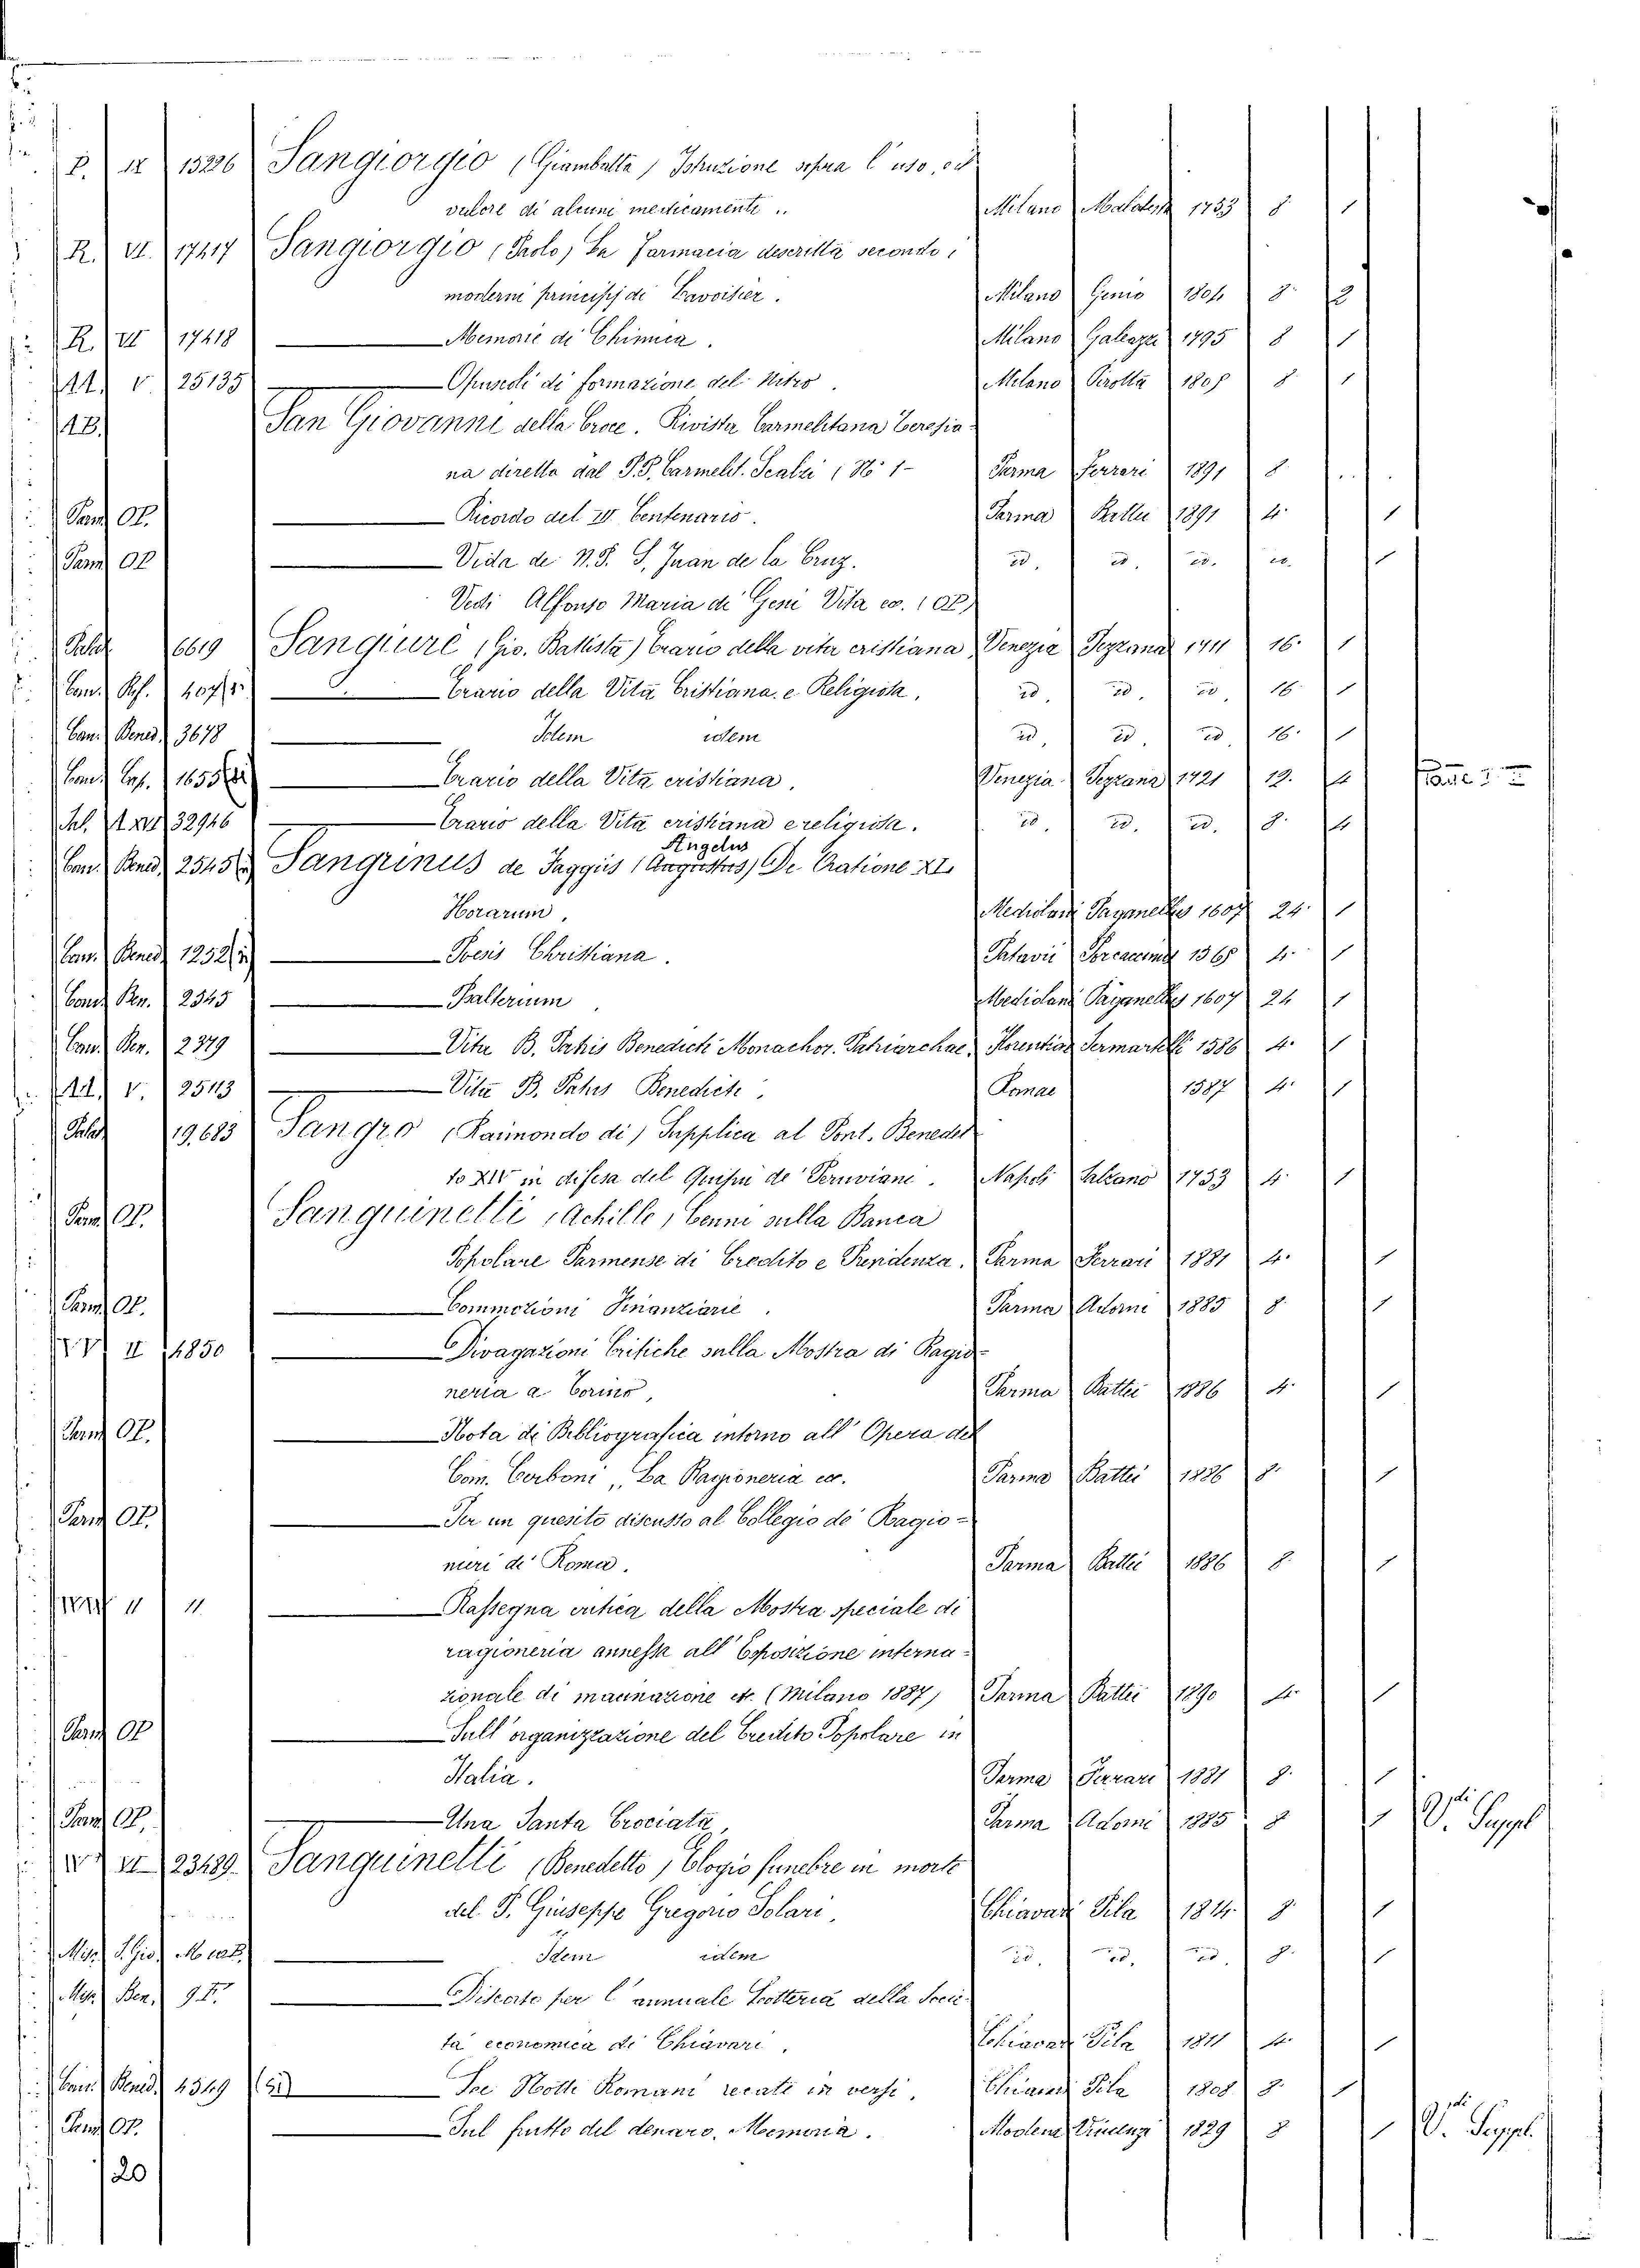 P. IX 15226 Sangiorgio (Giambatta) Istruzione sopra l'uso, ed
valore di alcuni medicamenti .. Milano 1783 8 1
R. VI. 17417 Sangiorgio (Paolo) La Farmacia descritta secondo i
moderni principj di Lavoisier. Milano Genio 1804 8 2
R. VI 17418 Memorie di Chimica. Milano Galeazzi 1795 8 1
AA. V 25135 Opuscoli di formazione del Nitro. Milano Pirotta 1805 8 1
AB. San Giovanni della Croce. Rivista Carmelitana Teresia-
na diretta dai P.P. Carmelit. Scalzi (No 1- Parma Ferrari 1891 8
Parm OP. Ricordo del III Centenario. Parma Battei 1891 4. 1
Parm OP Vida de N.P. S. Juan de la Cruz. id. id. id. id. 1
Vedi Alfonso Maria di Gesù Vita ec. (OP)
Palat 6619 Sangiure (Gio. Battista) Erario della vita cristiana Venezia Pezzana 1711 16. 1
Can. Rif. 407/2 Erario della Vita Cristiana. e Religiosa. id. id. id 16. 1
Can. Bened. 3678 Idem idem id. id. id 16. 1
Can. Cap. 1655 Erario della Vita cristiana. Venezia Pezzana 1721 12. 4
32946 Erario della Vita cristiana e religiosa. id. id. id. 8. 4
Angelus
Can. Bened. 2545 Sangrinus de Faggiis (Augustus) De Oratione XL
Horarum. Mediolani Paganellus 1607 24. 1
Can. Bened. 1252 Poesis Christiana. Patavii 1565 4. 1
Cand. Ben. 2545 Psalterium Mediolani Paganellus 1607 24 1
Can. Ben. 2379 Vita B. Patris Benedicti Monachor. Patriarchae. Florentiae Sermartelli 1586 4. 1
AA. V. 25113 Vita B. Patris Benedicti. Romae 1587 4. 1
Palat 19,683 Sangro (Raimondo di) Supplica al Pont. Benedet-
to XIV in difesa del Quipu de' Peruviani. Napoli 1753 4. 1
Parm OP. Sanguinetti (Achille) Cenni sulla Banca
Popolare Parmense di Credito e Previdenza. Parma Ferrari 1881 4. 1
Parm OP. Commotioni Finanziarie. Parma Adorni 1885 8 1
II 14850 Divagazioni Critiche sulla Mostra di Ragio-
neria a Torino, Parma Battei 1886 4. 1
Parm OP. Nota di Bibliografica intorno all'Opera del
Com. Cerboni, La Ragioneria ec. Parma Battei 1886 8. 1
Parm OP. Per un quesito discusso al Collegio de' Ragio-
nieri di Roma. Parma Battei 1886 8. 1
" " Rassegna critica della Mostra speciale di
ragioneria annessa all'Esposizione interna-
zionale di macinazione ec. (Milano 1887) Parma Battei 1890 4. 1
Parm OP Sull'organizzazione del Credito Popolare in
Italia. Parma Ferrari 1881 8. 1
Parm OP. Una Santa Crociata, Parma Adorni 1885 8 1 Vedi Suppl
23489. Sanguinetti (Benedetto) Elogio funebre in morte
del P. Giuseppe Gregorio Solari. Chiavari Pila 1814. 8. 1
Misc. S. Gio. Idem idem id. id. id. 8. 1
Misc. Ben. 9. Discorso per l'annuale Lotteria della Socie-
tà economica di Chiavari. Chiavari Pila 1811 4. 1
Can. Bened. 4549 Tre Notti Romani recate in versi. Chiavari Pila 1808 8. 1
Parm OP. Sul frutto del denaro. Memoria. Modena Vincenzi 1829 8 1 Vedi Suppl.
20